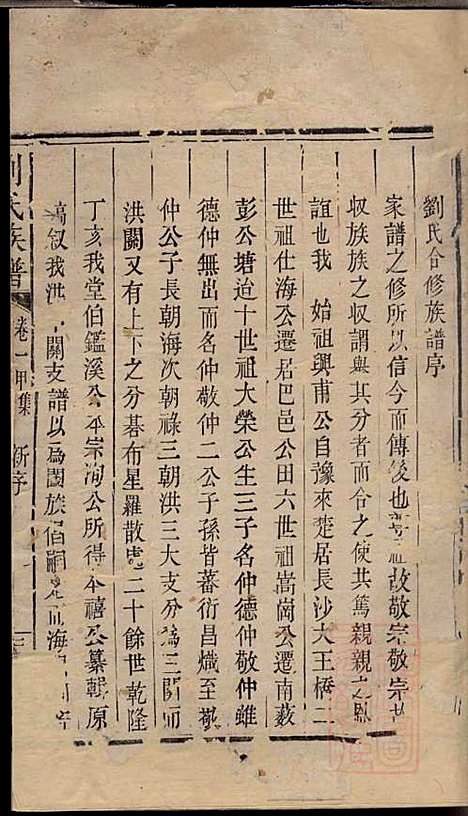 劉氏合修族譜序
家譜之修所以信今而傳後也尊祖故敬宗敬宗故
収族族之収謂與其分者而合之使其篤親親之恩
誼也我 始祖興甫公自豫來楚居長沙大王橋二
世祖仕海公遷居巴邑公田六世祖嵩崗公遷南薮
彭公塘迨十世祖大榮公生三子名仲德仲敬仲雖
德仲無出而名仲敬仲二公子孫皆蕃衍昌熾至
仲公子長朝海次朝祿三朝洪三大支分為三關而
洪關又有上下之分碁布星羅散處二十餘世乾隆
丁亥我堂伯鑑溪公本宗洵公所得本禧公纂輯原
稿叙我洪 關支譜以為闔族 海
劉氏族譜 卷一甲集 新序